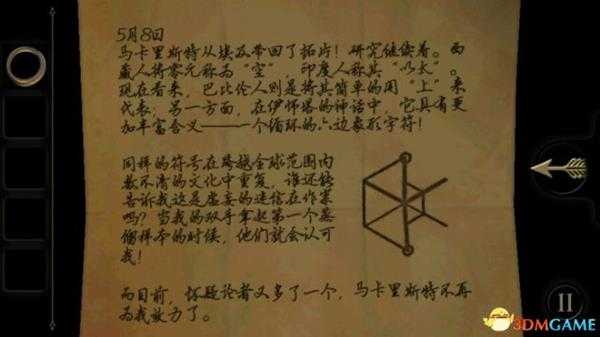 5月8日
马卡里斯特从埃及带回了拓片！研究继续着。西
藏人将零元称为“空”，印度人称其“以太”。
现在看来，巴比伦人则是将其简单的用“上”来
代表；另一方面，在伊怀塔的神话中，它具有更
加丰富含义——一个循环的六边象形字符！
同样的符号在跨越全球范围内
数不清的文化中重复，谁还能
告诉我这是虚妄的迷信在作祟
吗？当我的双手拿起第一个蒸
馏样本的时候，他们就会认可
我！
而目前，怀疑论者又多了一个，马卡里斯特不再
为我效力了。
3DMGAME